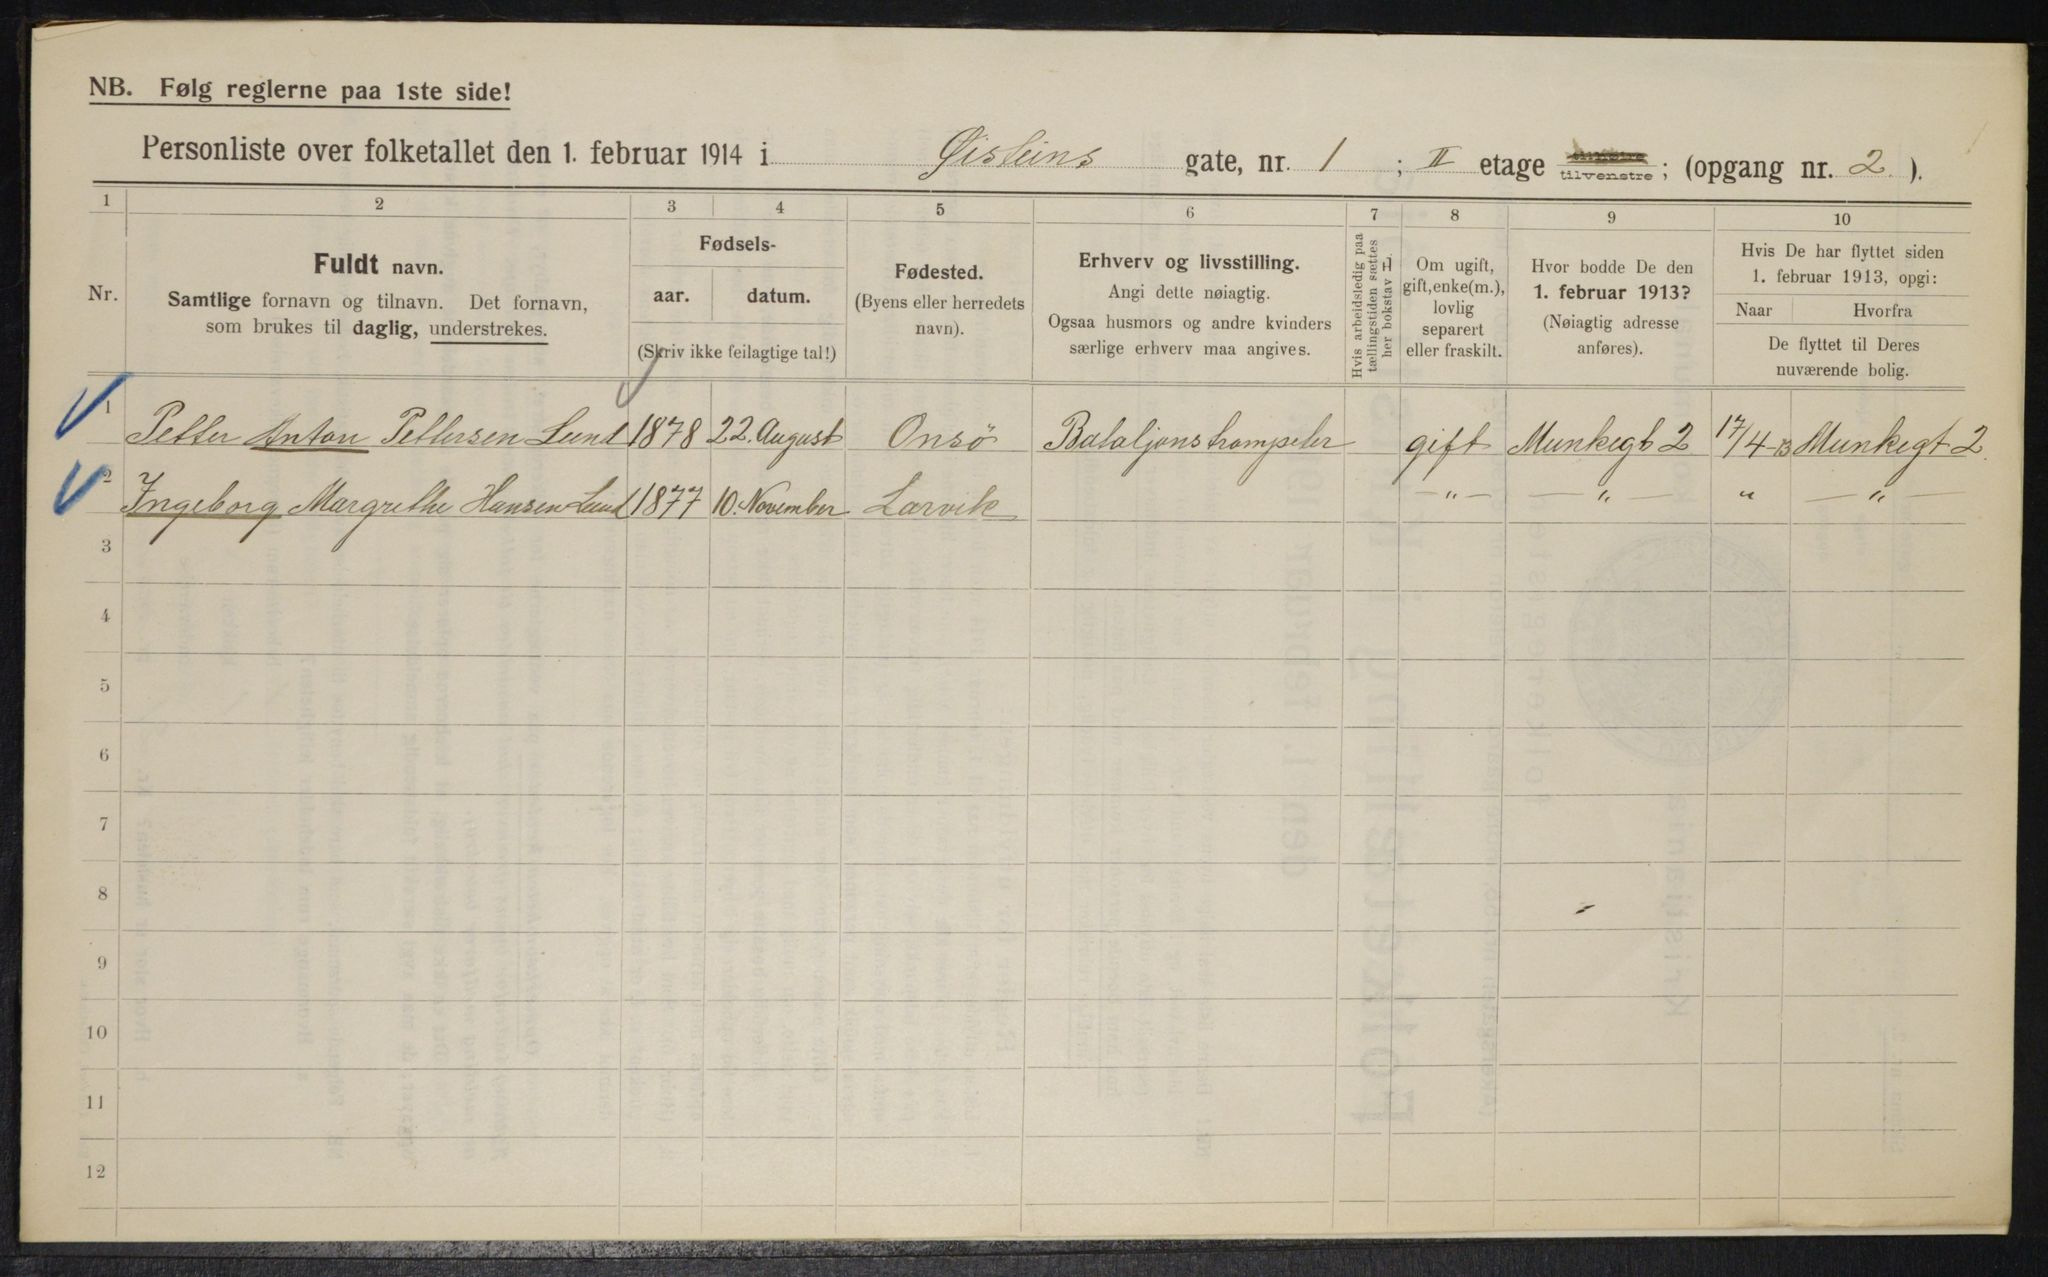 NB. Følg reglerne paa 1ste side!
Personliste over folketallet den 1. februar 1914 i Øisteins gate, nr. 1 ; II etage tilvenstre; (opgang nr. 2 ).
1 2 3 4 5 6 7 8 9 10
Nr.
Fuldt navn.
Samtlige fornavn og tilnavn. Det fornavn,
som brukes til daglig, understrekes.
Fødsels-
aar. datum.
(Skriv ikke feilagtige tal!)
Fødested.
(Byens eller herredets
navn).
Erhverv og livsstilling.
Angi dette nøiagtig.
Ogsaa husmors og andre kvinders
særlige erhverv maa angives.
Hvis arbeidsledig paa
tællingstiden sættes
her bokstav L
Om ugift,
gift, enke(m.),
lovlig
separert
eller fraskilt.
Hvor bodde De den
1. februar 1913?
(Nøiagtig adresse
anføres).
Hvis De har flyttet siden
1. februar 1913, opgi:
Naar Hvorfra
De flyttet til Deres
nuværende bolig.
1 Petter Anton Pettersen Lund 1878 22. August Onsö Bataljonstrompeter gift Munkegt 2 17/4-13 Munkegt 2.
2 Ingeborg Margrethe Hansen Lund 1877 10. November Larvik — „ — — „ — „ — „ —
3
4
5
6
7
8
9
10
11
12